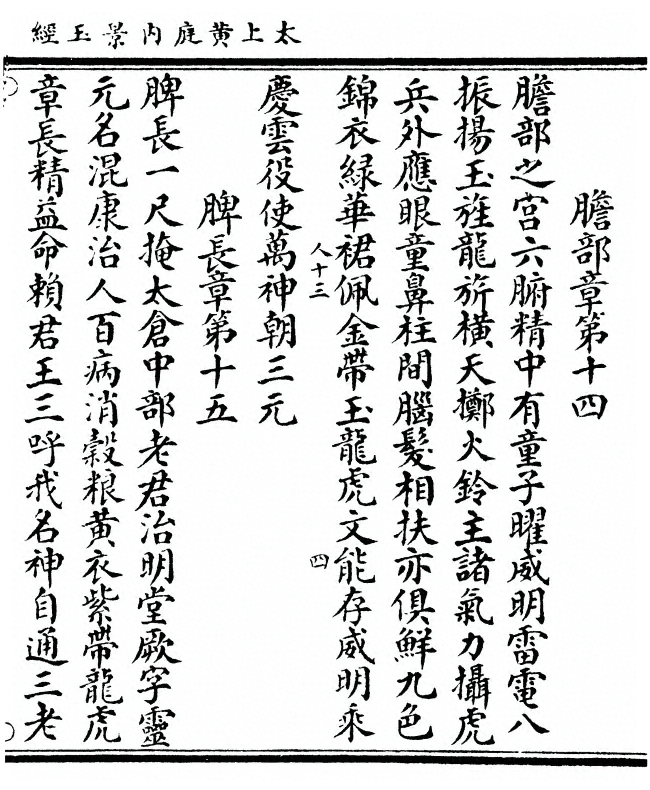 太上黄庭內景玉經
膽部章第十四
膽部之宮六腑精中有童子曜威明雷電八
振揚玉旌龍旂橫天擲火鈴主諸氣力攝虎
兵外應眼童鼻柱間腦髮相扶亦俱鮮九色
錦衣綠華裙佩金帶玉龍虎文能存威明乘
人十三
四
慶雲役使萬神朝三元
脾長章第十五
脾長一尺掩太倉中部老君治明堂厥字靈
元名混康治人百病消穀粮黄衣紫帶龍虎
章長精益命賴君王三呼我名神自通三老